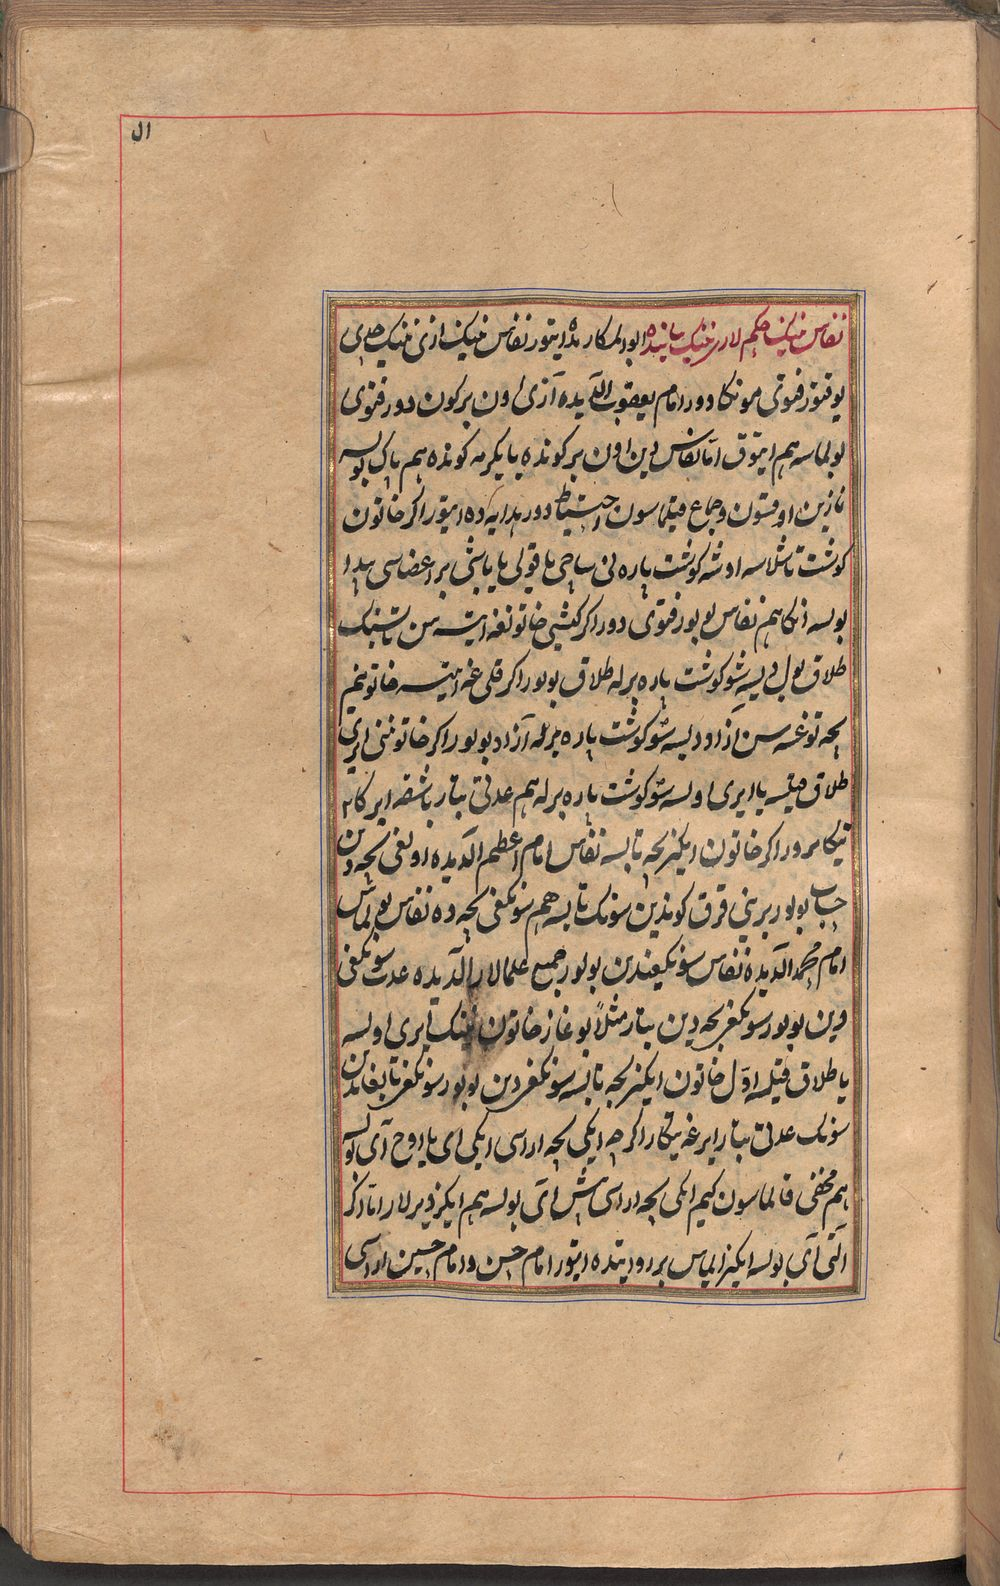 ۵۱
نفاس نینک حکم لاری نینک بیانیده ابوالمکارمده ایتور نفاس نینک ازی نینک حدی
یوقتور فتوی مونکا دور امام یعقوب الّیده آزی اون بر کون دور فتوی
بولماسه هم ایتوق امّا نفاس دین اون بر کونده یا یکرمه کونده هم پاک بولسه
نمازین اوقسون و جماع قیلماسون احتیاط دور هدایه ده ایتور اکر خاتون
کوشت تاشلاسه اوشه کوشت پاره نی ساچی یا قولی یا باشی بر اعضاسی پیدا
بولسه انکا هم نفاس بولور فتوی دور اکر کشی خاتونغه ایتسه سن تاشنک
طلاق بول دیسه شو کوشت پاره برله طلاق بولور اکر قلی غه ایتسه خاتونم
بچه توغسه سن آزاد دیسه شو کوشت پاره برله آزاد بولور اکر خاتوننی ایری
طلاق قیلسه یا ایری اولسه شو کوشت پاره برله هم عدتی بیتار باشقه ایرکا
تیکابرور اکر خاتون ایکیز بچه تابسه نفاس امام اعظم الّدیده اولغی بچه دین
حساب بولور برینی قرق کوندین سونک تابسه هم سونکغی بچه ده نفاس بولماس
امام محمد الّدیده نفاس سونکیغیندن بولور جمیع علمالار الّدیده عدت سونکغی
دین بولور سونکغی بچه دین بیتار مثلاً بوغاز خاتون نینک ایری اولسه
یا طلاق قیلسه اوّل خاتون ایکیز بچه تابسه سونکغی دین بولور سونکغی تابغاندین
سونک عدتی بیتار ایرغه تیکار اکرچه ایکی بچه اراسی ایکی ای یا اوچ آی بولسه
هم مخفی قالماسون کیم ایکی بچه اراسی بش ای بولسه هم ایکیز دیرلار امّا اکر
آلتی آی بولسه ایکیز ایماس بر روایتده ایتور امام حسن و امام حسین اراسی